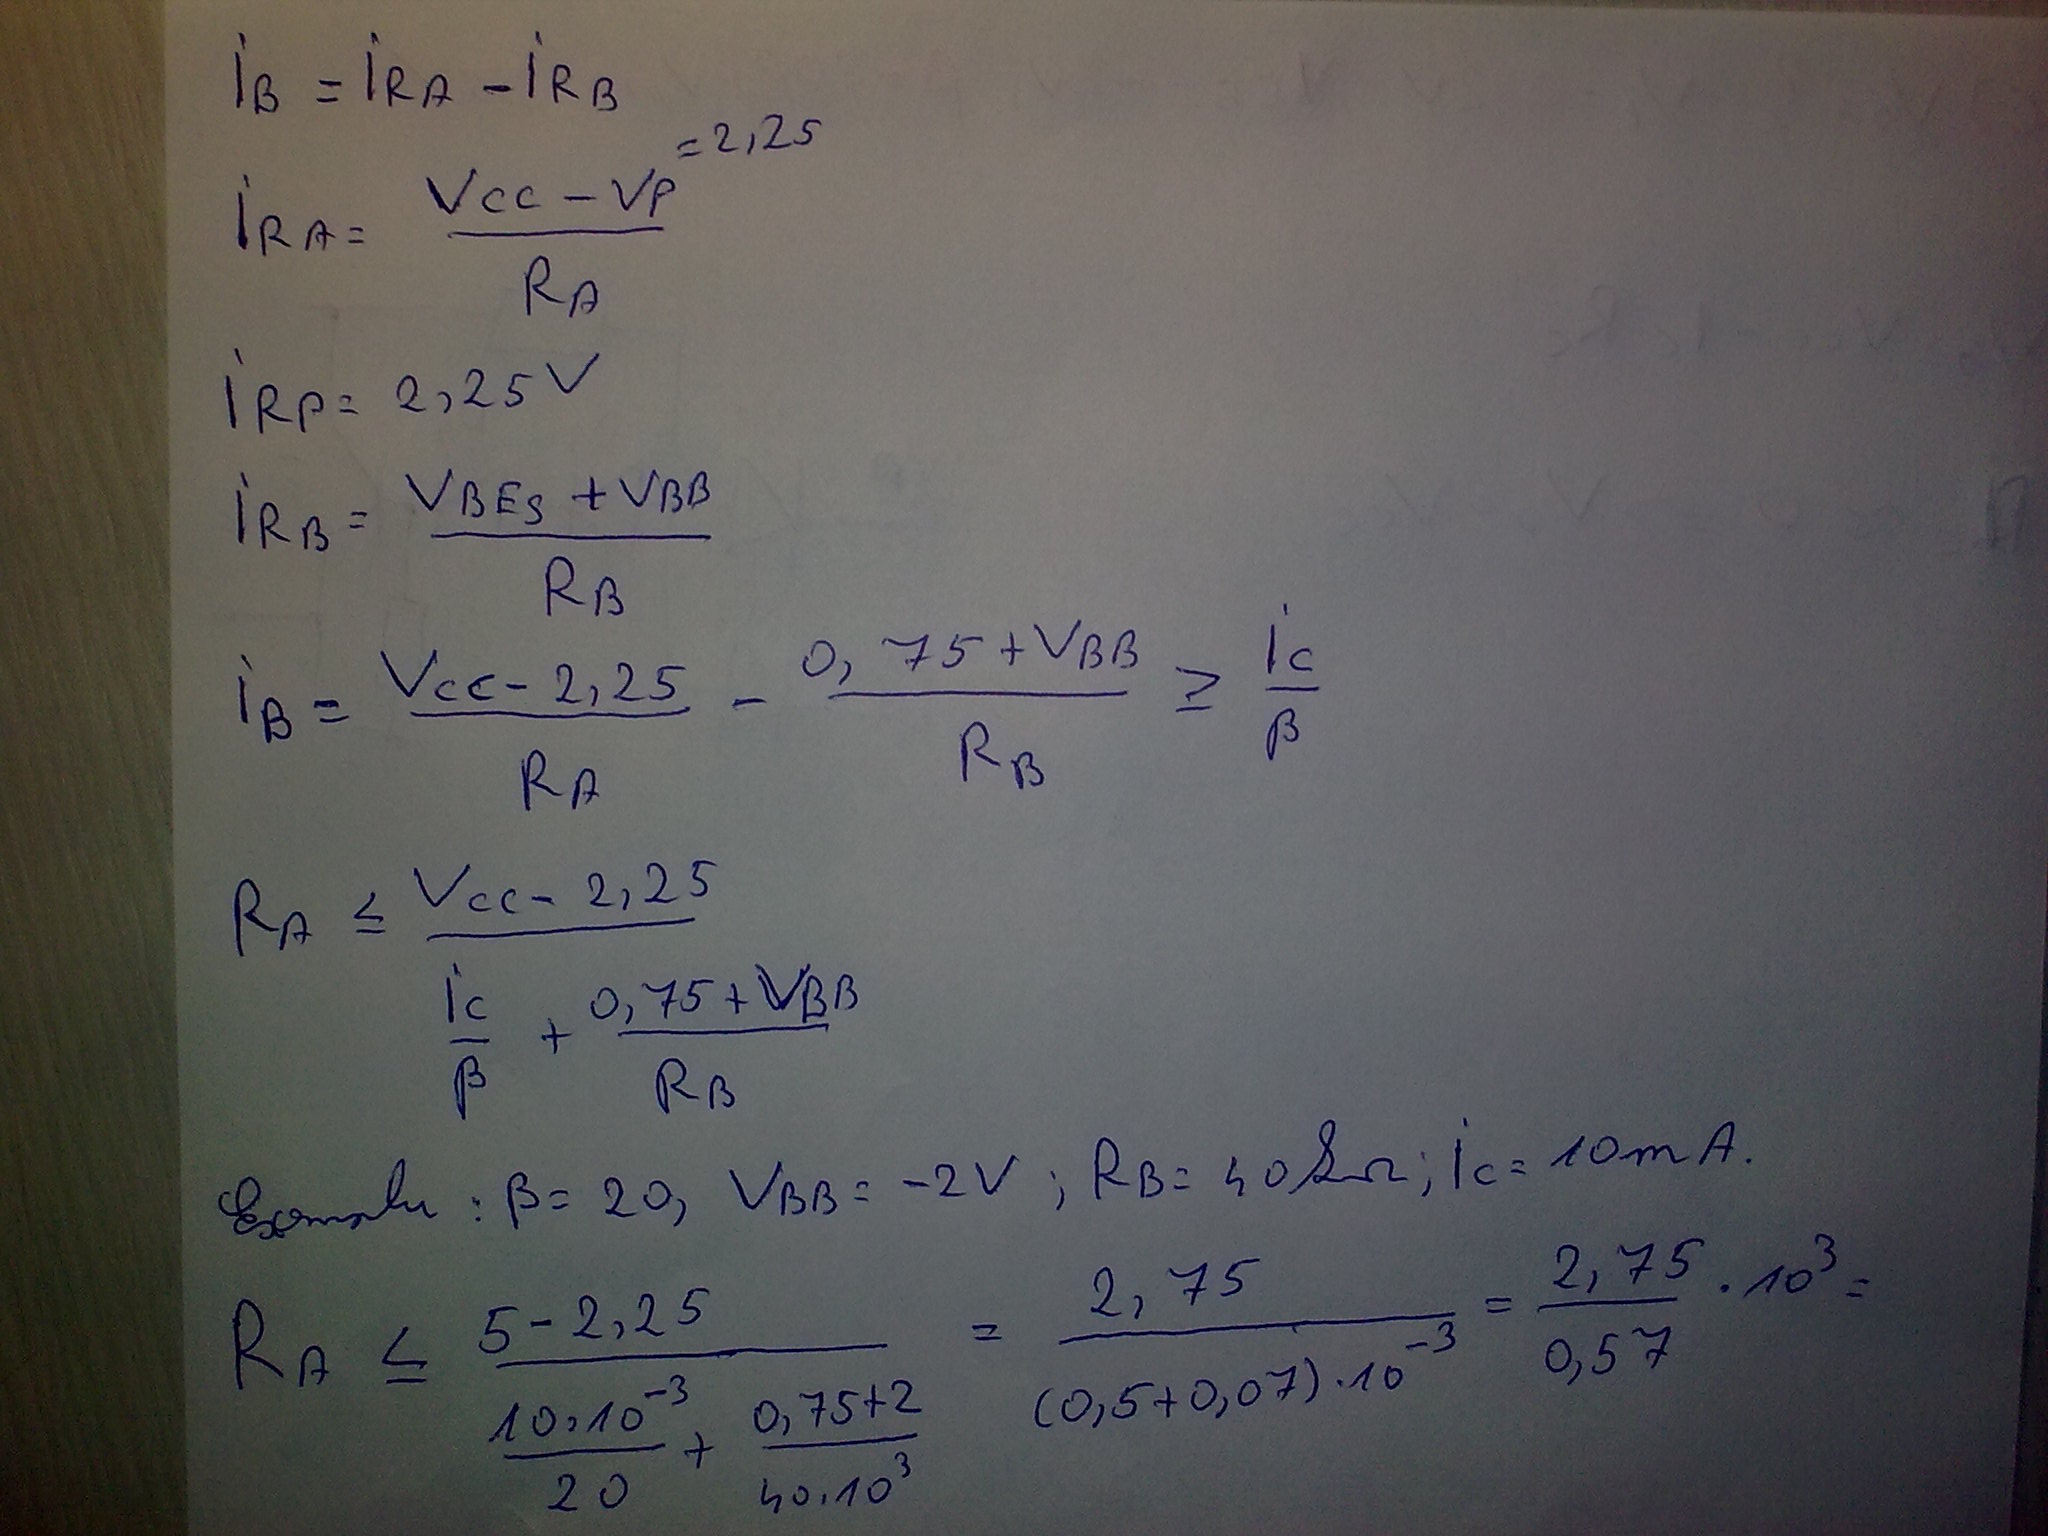 iB = iRA - iRB
iRA = (VCC - VP)/RA = 2,25
iRP = 2,25V
iRB = (VBES + VBB)/RB
iB = (VCC - 2,25)/RA - (0,75 + VBB)/RB ≥ iC/β
RA ≤ (VCC - 2,25)/(iC/β + (0,75 + VBB)/RB)
Exemplu : β = 20, VBB = -2V ; RB = 40kΩ ; iC = 10mA.
RA ≤ (5 - 2,25)/((10.10^-3)/20 + (0,75+2)/(40.10^3)) = 2,75/((0,5+0,07).10^-3) = 2,75/0,57 . 10^3 =